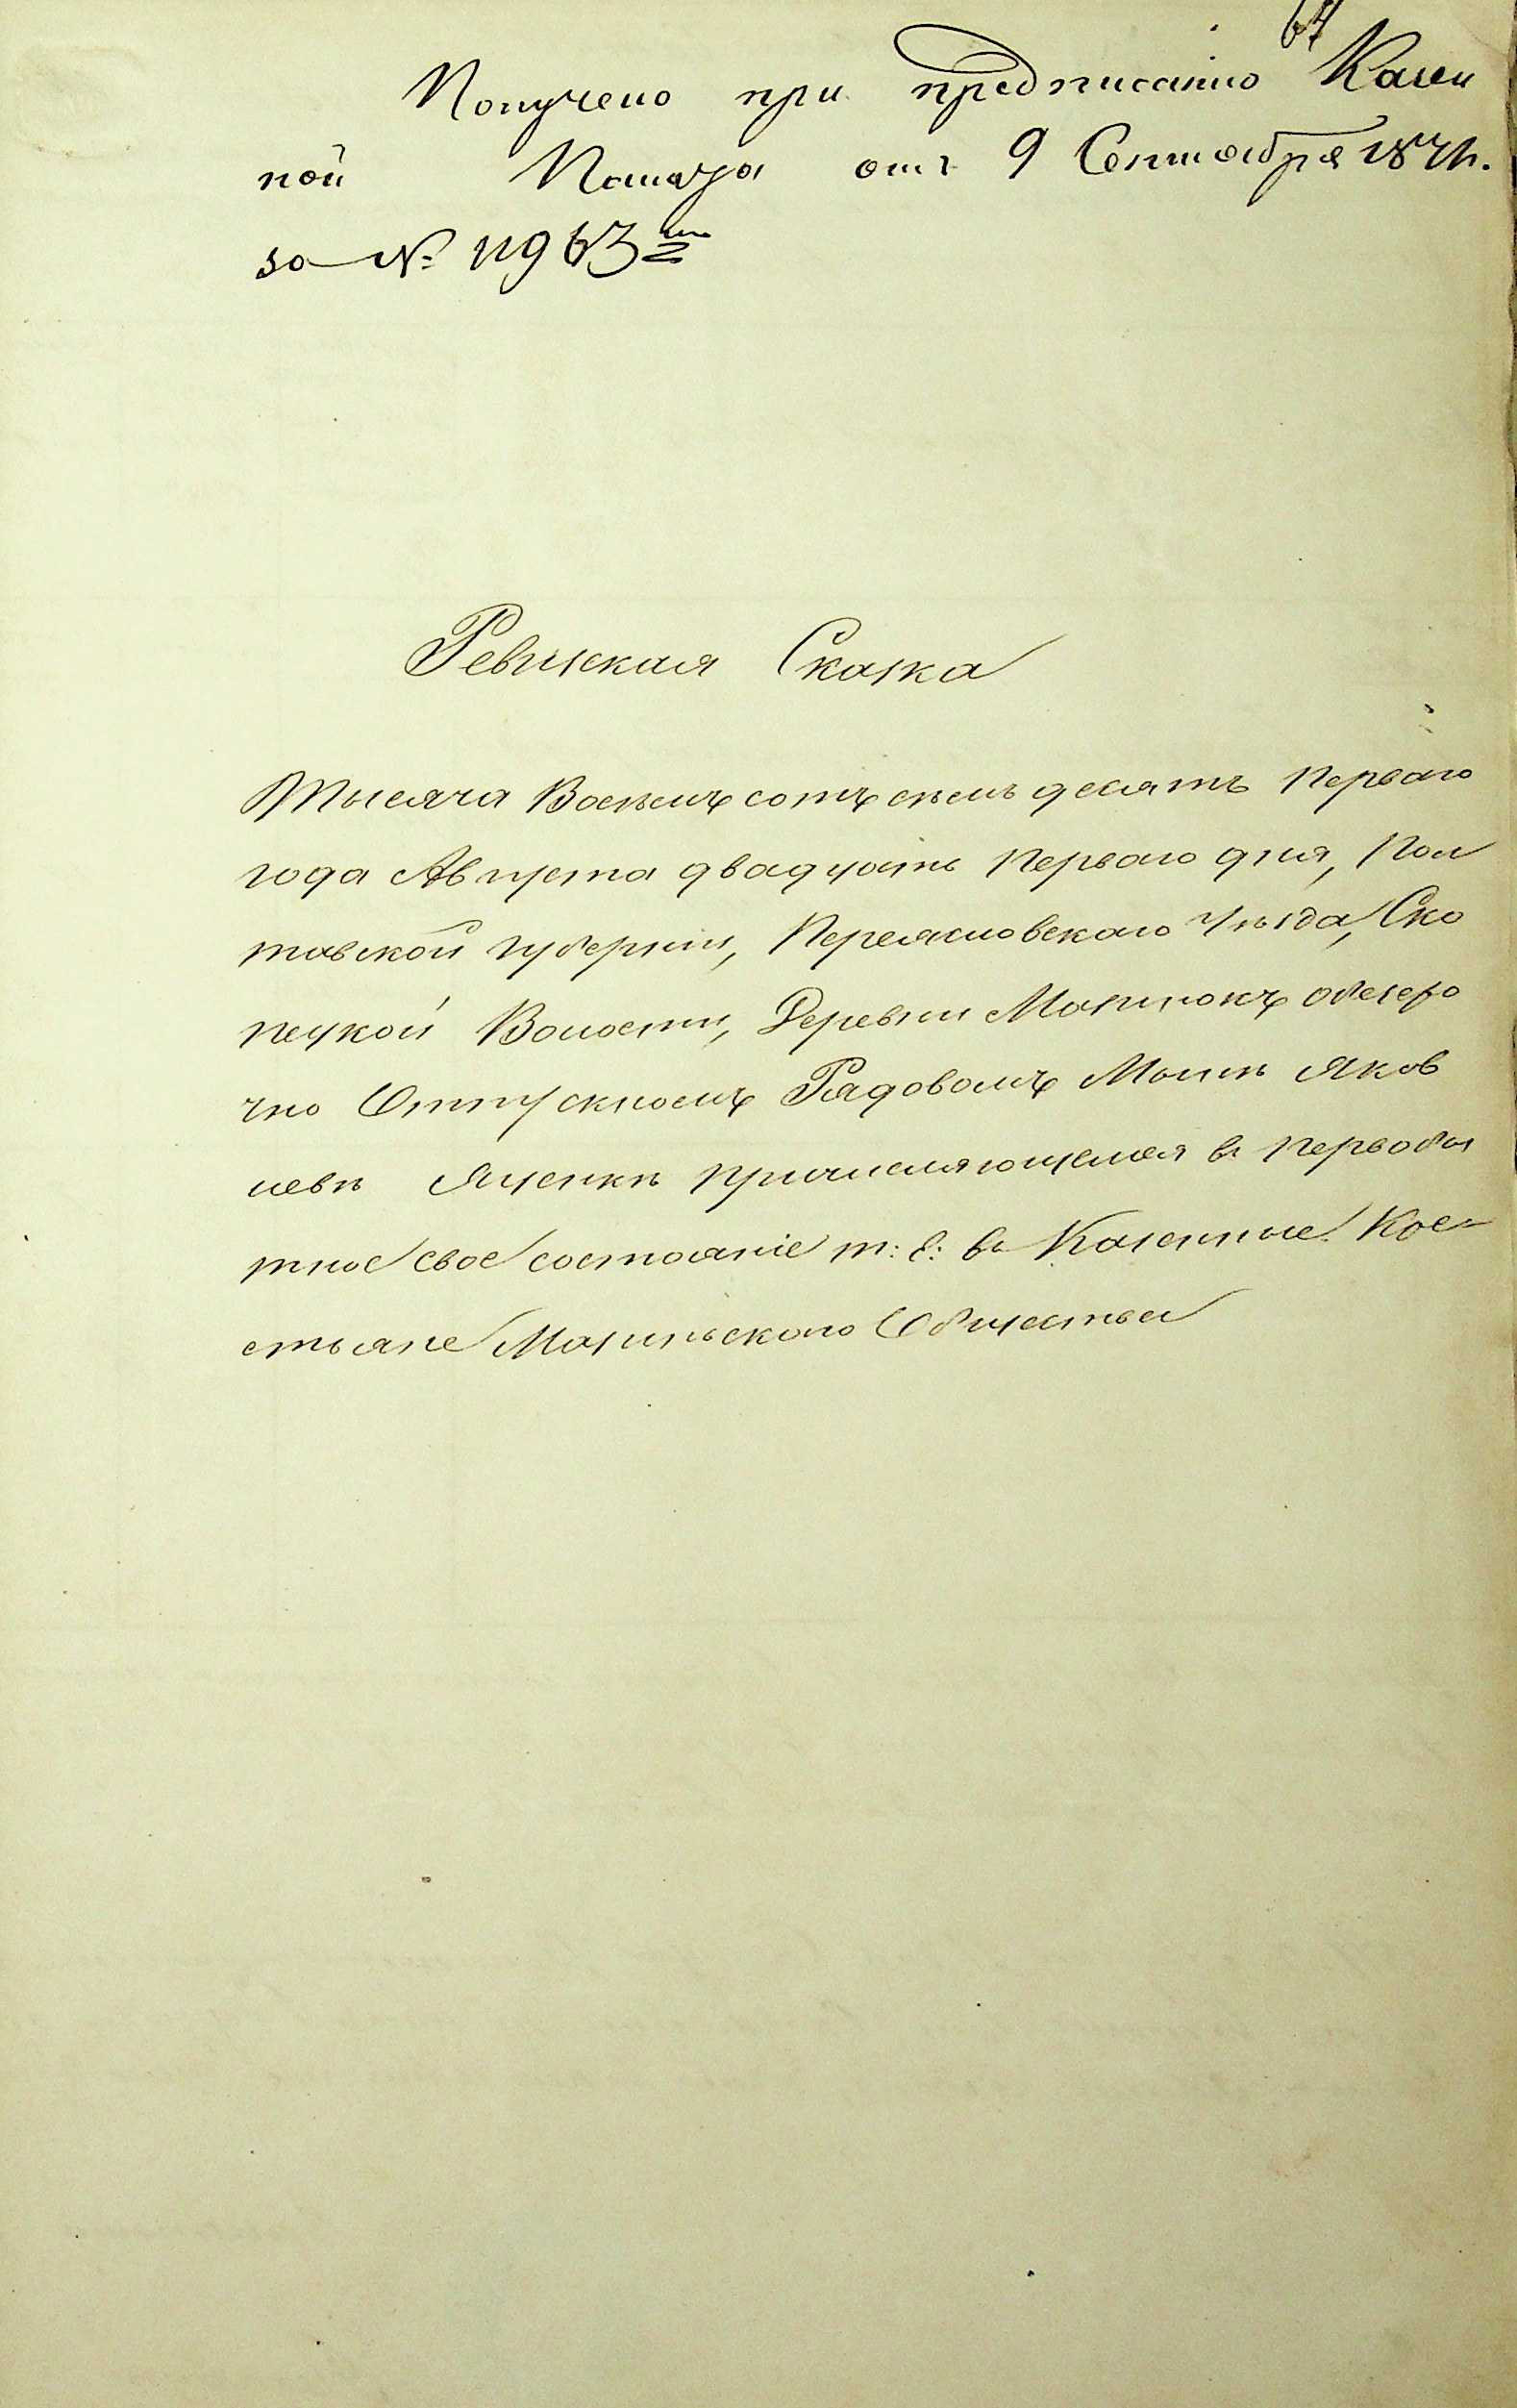 67
Получено при предписанію Казен
ной Палаты отъ 9 Сентября 1871 г.
за № 11963 мъ
Ревизская Сказка
Тысяча Восемьсотъ семьдесятъ Перваго
года Августа двадцать Перваго дня, Пол
тавской Губерніи, Переяславскаго Уѣзда, Ско
пецкой Волости, Деревни Мазинокъ о безсро
чно Отпускномъ Рядовомъ Яков
левѣ Яценкѣ причисляющемся въ Первобы
тное свое состояніе т: е: въ Казенные Кре-
стьяне Мазинского Общества